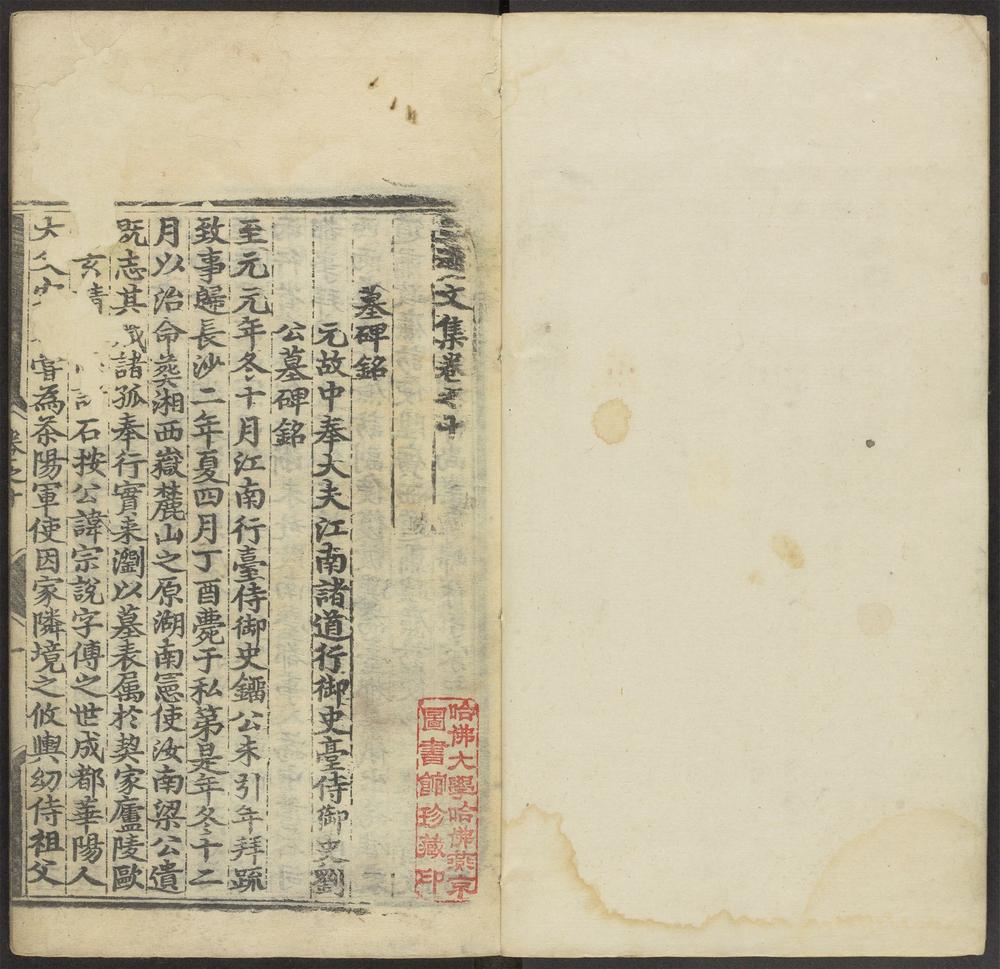 文集卷之十
墓碑銘
元故中奉大夫江南諸道行御史臺侍御史劉
公墓碑銘
至元元年冬十月江南行臺侍御史鐂公未引年拜䟽
致事歸長沙二年夏四月丁酉薨于私第是年冬十二
月以治命葬湘西嶽麓山之原湖南憲使汝南梁公僨
旣志其諸孤奉行實来瀏以墓表属於契家廬陵歐
玄請石按公諱宗說字傳之世成都華陽人
大甞為茶陽軍使因家隣境之攸輿幼侍祖父
卷之十
一
哈佛大學哈佛燕京
圖書館珍藏印